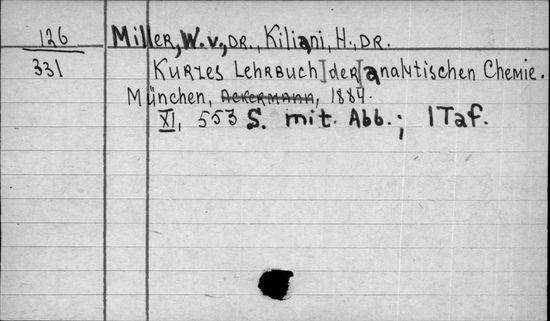 126 Miller, W. v., Dr., Kiliani, H., Dr.
331 Kurzes Lehrbuch [der] analytischen Chemie.
München, Ackermann, 1884.
XI, 553 S. mit. Abb.; 1 Taf.